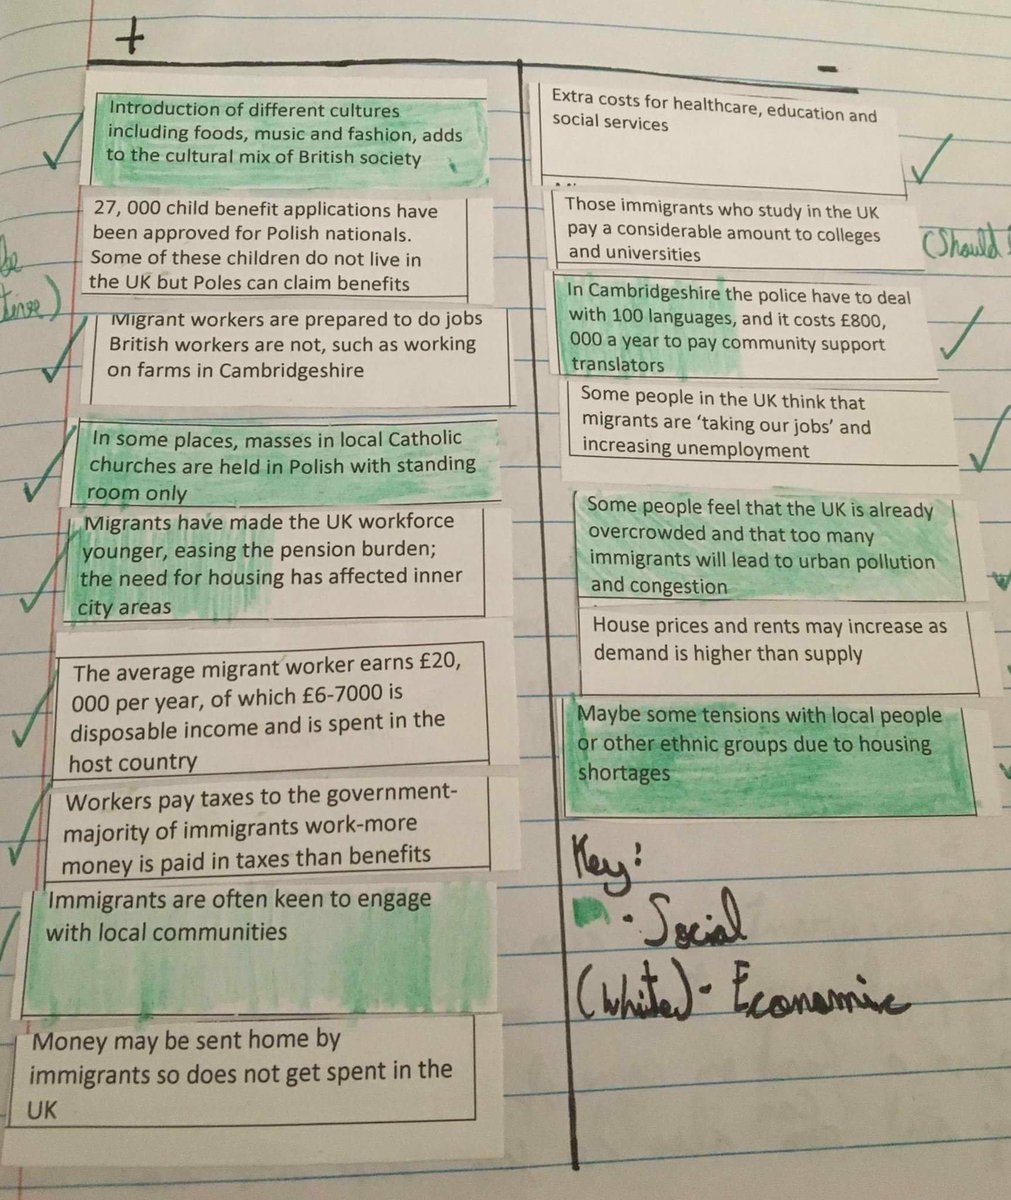 +
Introduction of different cultures
including foods, music and fashion, adds
to the cultural mix of British society
27, 000 child benefit applications have
been approved for Polish nationals.
Some of these children do not live in
the UK but Poles can claim benefits
Migrant workers are prepared to do jobs
British workers are not, such as working
on farms in Cambridgeshire
In some places, masses in local Catholic
churches are held in Polish with standing
room only
Migrants have made the UK workforce
younger, easing the pension burden;
the need for housing has affected inner
city areas
The average migrant worker earns £20,
000 per year, of which £6-7000 is
disposable income and is spent in the
host country
Workers pay taxes to the government-
majority of immigrants work-more
money is paid in taxes than benefits
Immigrants are often keen to engage
with local communities
Money may be sent home by
immigrants so does not get spent in the
UK
-
Extra costs for healthcare, education and
social services
Those immigrants who study in the UK
pay a considerable amount to colleges
and universities
(Should
In Cambridgeshire the police have to deal
with 100 languages, and it costs £800,
000 a year to pay community support
translators
Some people in the UK think that
migrants are ‘taking our jobs’ and
increasing unemployment
Some people feel that the UK is already
overcrowded and that too many
immigrants will lead to urban pollution
and congestion
House prices and rents may increase as
demand is higher than supply
Maybe some tensions with local people
or other ethnic groups due to housing
shortages
Key:
- Social
(White) - Economic